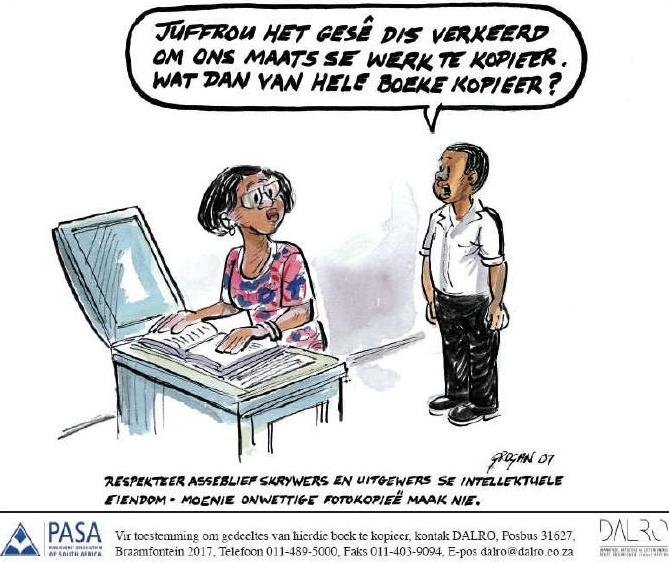 JUFFROU HET GESÊ DIS VERKEERD
OM ONS MAATS SE WERK TE KOPIEER.
WAT DAN VAN HELE BOEKE KOPIEER?
GROGAN 07
RESPEKTEER ASSEBLIEF SKRYWERS EN UITGEWERS SE INTELLEKTUELE
EIENDOM - MOENIE ONWETTIGE FOTOKOPIEË MAAK NIE.
PASA
PUBLISHERS' ASSOCIATION
OF SOUTH AFRICA
Vir toestemming om gedeeltes van hierdie boek te kopieer, kontak DALRO, Posbus 31627,
Braamfontein 2017, Telefoon 011-489-5000, Faks 011-403-9094, E-pos dalro@dalro.co.za
DALRO